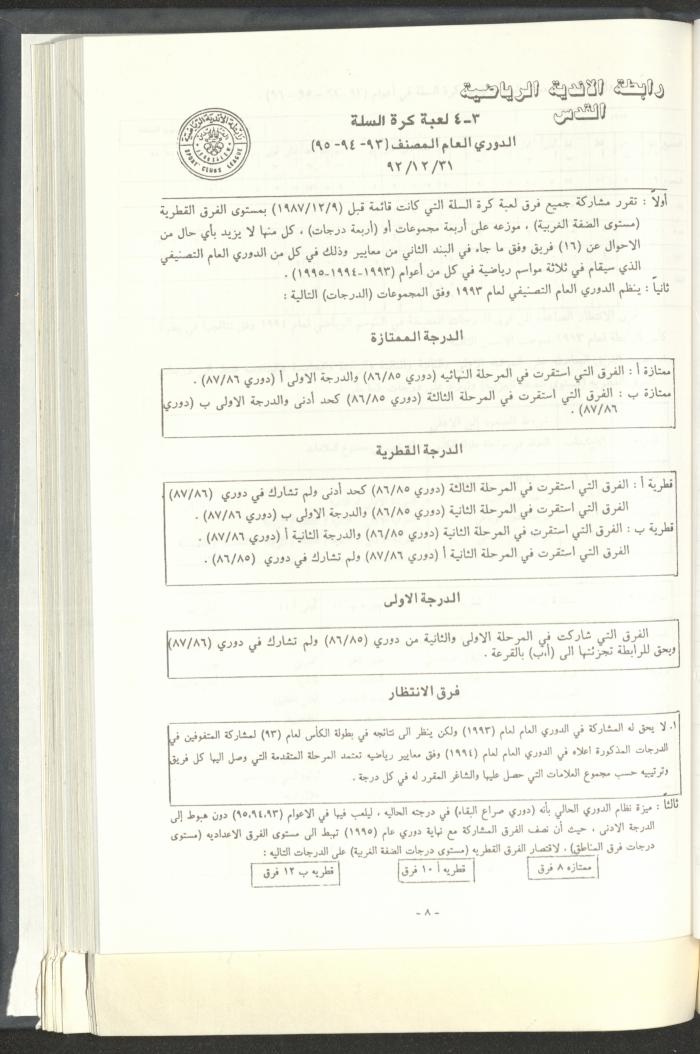 رابطة الاندية الرياضية
القدس
٣-٤ لعبة كرة السلة
الدوري العام المصنف (٩٣- ٩٤- ٩٥)
٩٢/١٢/٣١
SPORT CLUBS LEAGUE
أولاً : تقرر مشاركة جميع فرق لعبة كرة السلة التي كانت قائمة قبل (١٩٨٧/١٢/٩) بمستوى الفرق القطرية
(مستوى الضفة الغربية) ، موزعه على أربعة مجموعات أو (أربعة درجات) ، كل منها لا يزيد بأي حال من
الاحوال عن (١٦) فريق وفق ما جاء في البند الثاني من معايير وذلك في كل من الدوري العام التصنيفي
الذي سيقام في ثلاثة مواسم رياضية في كل من أعوام (١٩٩٣-١٩٩٤-١٩٩٥) .
ثانياً : ينظم الدوري العام التصنيفي لعام ١٩٩٣ وفق المجموعات (الدرجات) التالية :
الدرجة الممتازة
ممتازة أ : الفرق التي استقرت في المرحلة النهائيه (دوري ٨٦/٨٥) والدرجة الاولى أ (دوري ٨٧/٨٦) .
ممتازة ب : الفرق التي استقرت في المرحلة الثالثة (دوري ٨٦/٨٥) كحد أدنى والدرجة الاولى ب (دوري
٨٧/٨٦) .
الدرجة القطرية
قطرية أ : الفرق التي استقرت في المرحلة الثالثة (دوري ٨٦/٨٥) كحد أدنى ولم تشارك في دوري (٨٧/٨٦)
الفرق التي استقرت في المرحلة الثانية (دوري ٨٦/٨٥) والدرجة الاولى ب (دوري ٨٧/٨٦) .
قطرية ب : الفرق التي استقرت في المرحلة الثانية (دوري ٨٦/٨٥) والدرجة الثانية أ (دوري ٨٧/٨٦) .
الفرق التي استقرت في المرحلة الثانية أ (دوري ٨٧/٨٦) ولم تشارك في دوري (٨٦/٨٥) .
الدرجة الاولى
الفرق التي شاركت في المرحلة الاولى والثانية من دوري (٨٦/٨٥) ولم تشارك في دوري (٨٧/٨٦)
ويحق للرابطة تجزئتها الى (أ،ب) بالقرعة .
فرق الانتظار
١. لا يحق له المشاركة في الدوري العام لعام (١٩٩٣) ولكن ينظر الى نتائجه في بطولة الكأس لعام (٩٣) لمشاركة المتفوقين في
الدرجات المذكورة اعلاه في الدوري العام لعام (١٩٩٤) وفق معايير رياضيه تعتمد المرحلة المتقدمة التي وصل اليها كل فريق
وترتيبيه حسب مجموع العلامات التي حصل عليها والشاغر المقرر له في كل درجة .
ثالثاً : ميزة نظام الدوري الحالي بأنه (دوري صراع البقاء) في درجته الحاليه ، ليلعب فيها في الاعوام (٩٥،٩٤،٩٣) دون هبوط إلى
الدرجة الادنى ، حيث أن نصف الفرق المشاركة مع نهاية دوري عام (١٩٩٥) تهبط الى مستوى الفرق الاعداديه (مستوى
درجات فرق المناطق) ، لاقتصار الفرق القطريه (مستوى درجات الضفة الغربية) على الدرجات التاليه :
ممتازه ٨ فرق قطريه أ ١٠ فرق قطريه ب ١٢ فرق
- ٨ -